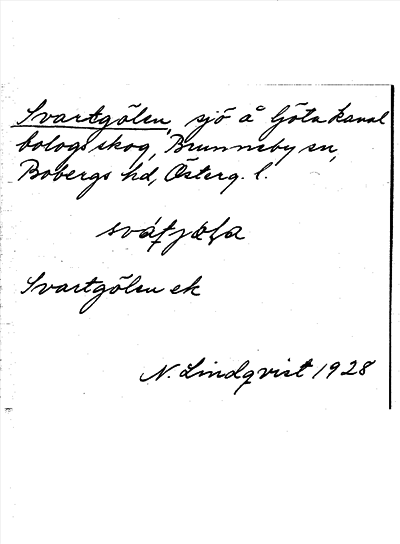 Svartgölen, sjö å Göta kanal
bolags skog, Brunneby sn,
Bobergs hd, Österg. l.
Svartgölen ek
N. Lindqvist 1928